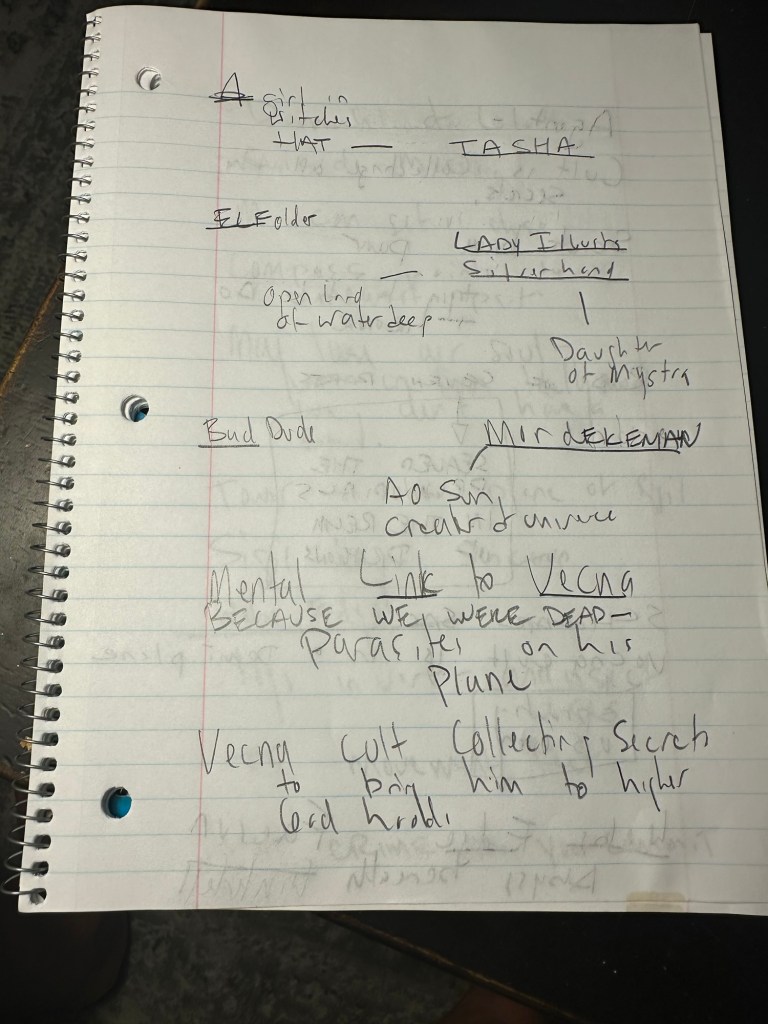 A girl in
Witches
HAT — TASHA
ELF older
LADY Illustra
Silverhand
Open Lord
of Waterdeep
Daughter
of Mystra
Bad Dude
MordEKEMAN
AO Sun,
creator of universe
Mental Link to Vecna
BECAUSE WE WERE DEAD —
Parasites on his
Plane
Vecna Cult Collecting Secrets
to bring him to higher